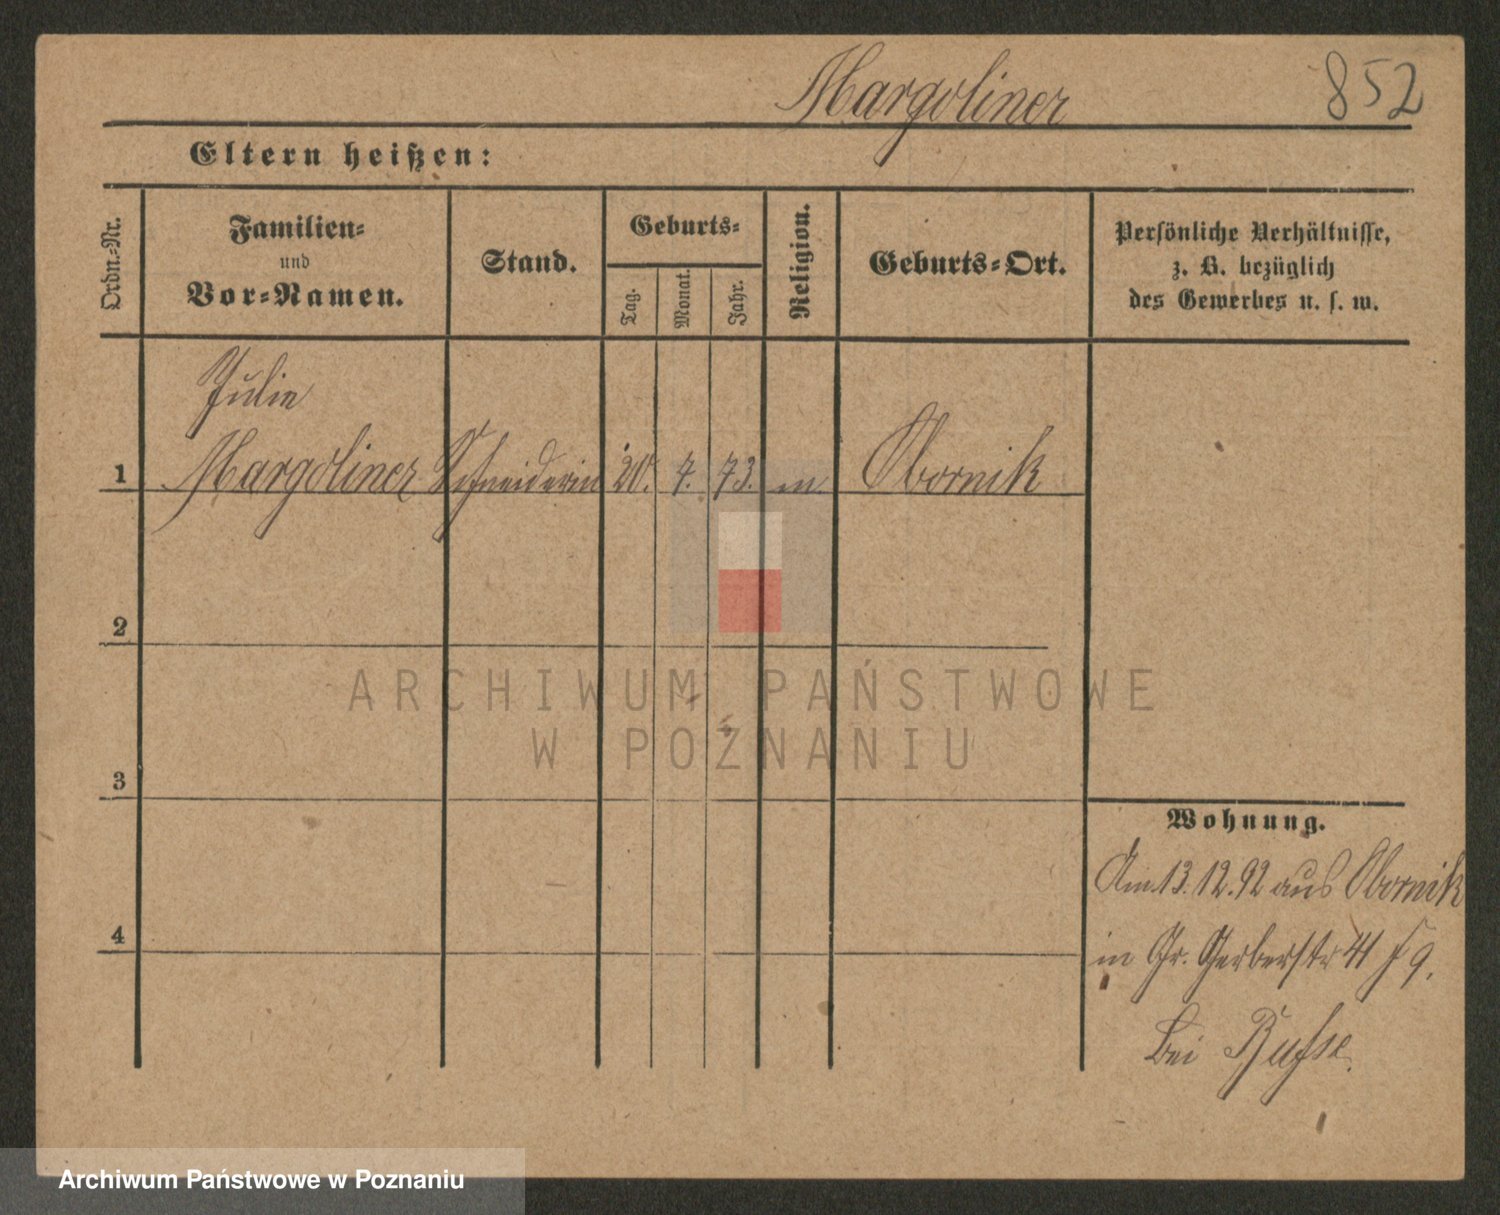 Margoliner 852
Eltern heißen:
Ordn.-Nr.
Familien-
und
Vor-Namen.
Stand.
Geburts-
Tag.
Monat.
Jahr.
Religion.
Geburts-Ort.
Persönliche Verhältnisse,
z. B. bezüglich
des Gewerbes u. s. w.
Julie
1 Margoliner Schneiderin 20. 7. 73. m. Obornik
2
ARCHIWUM PAŃSTWOWE
W POZNANIU
3
Wohnung.
Am 13.12.92 aus Obornik
4
in Gr. Gerberstr 41 9.
bei
Archiwum Państwowe w Poznaniu